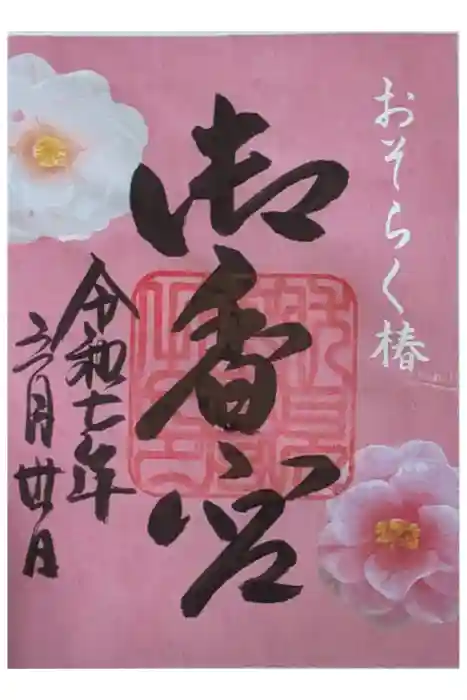 おそらく椿
御香宮
令和七年
三月丗日